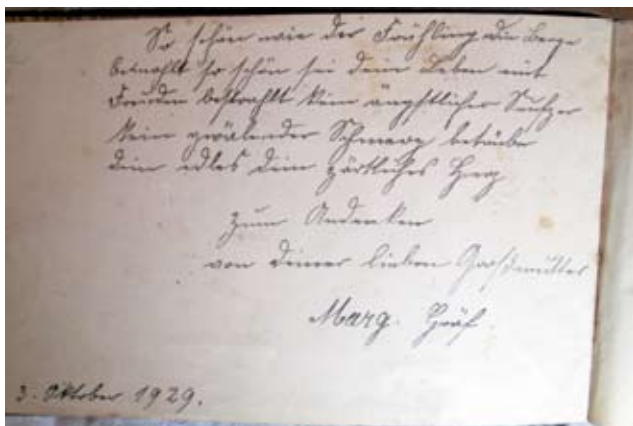 So schön wie der Frühling die Berge
bemahlt so schön sei dein Leben mit
Freuden bestrahlt kein ängstlicher Seufzer
kein quälender Schmerz betrübe
dein edles dein zärtliches Herz
zum Andenken
von deiner lieben Großmutter
Marg. Gräf.
3. Oktober 1929.